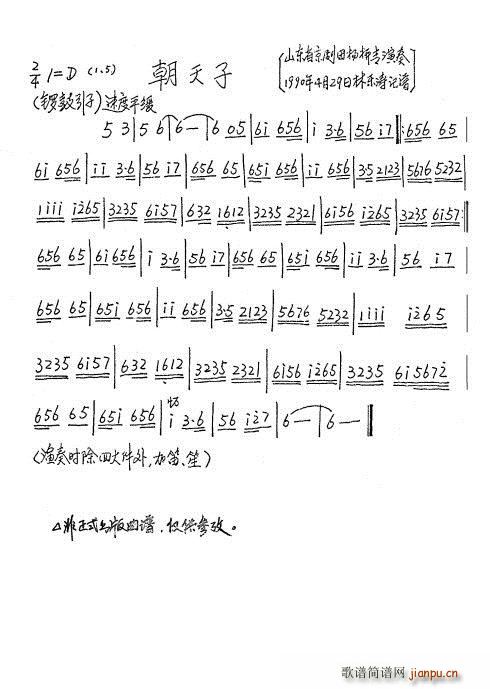 2/4 1=D (1.5) 朝天子
山东省京剧田杨桥专演奏
1990年4月29日林乐涛记谱
(锣鼓引子)速度平缓
5 3 | 5 6 | 6 — | 6 05 | 6i 656 | i 3·6 | 56 i7 ‖: 656 65 |
6i 656 | ii 3·6 | 56 i7 | 656 65 | 65i 656 | ii 656 | 35 2123 | 5676 5232 |
1iii i265 | 3235 6i57 | 632 1612 | 3235 2321 | 6i56 i265 | 3235 6i57 :‖
656 65 | 6i 656 | i 3·6 | 56 i7 | 656 65 | 65i 656 | ii 3·6 | 56 i7 |
656 65 | 65i 656 | ii 656 | 3·5 2123 | 5676 5232 | 1iii i265 |
3235 6i57 | 632 1612 | 3235 2321 | 6i56 i265 | 3235 6i567i |
656 65 | 65i 656 | i 3·6 | 56 i27 | 6 — | 6 — ‖
(演奏时除四大件外,加笛、笙)
△非正式出版曲谱,仅供参改。
歌谱简谱网
jianpu.cn